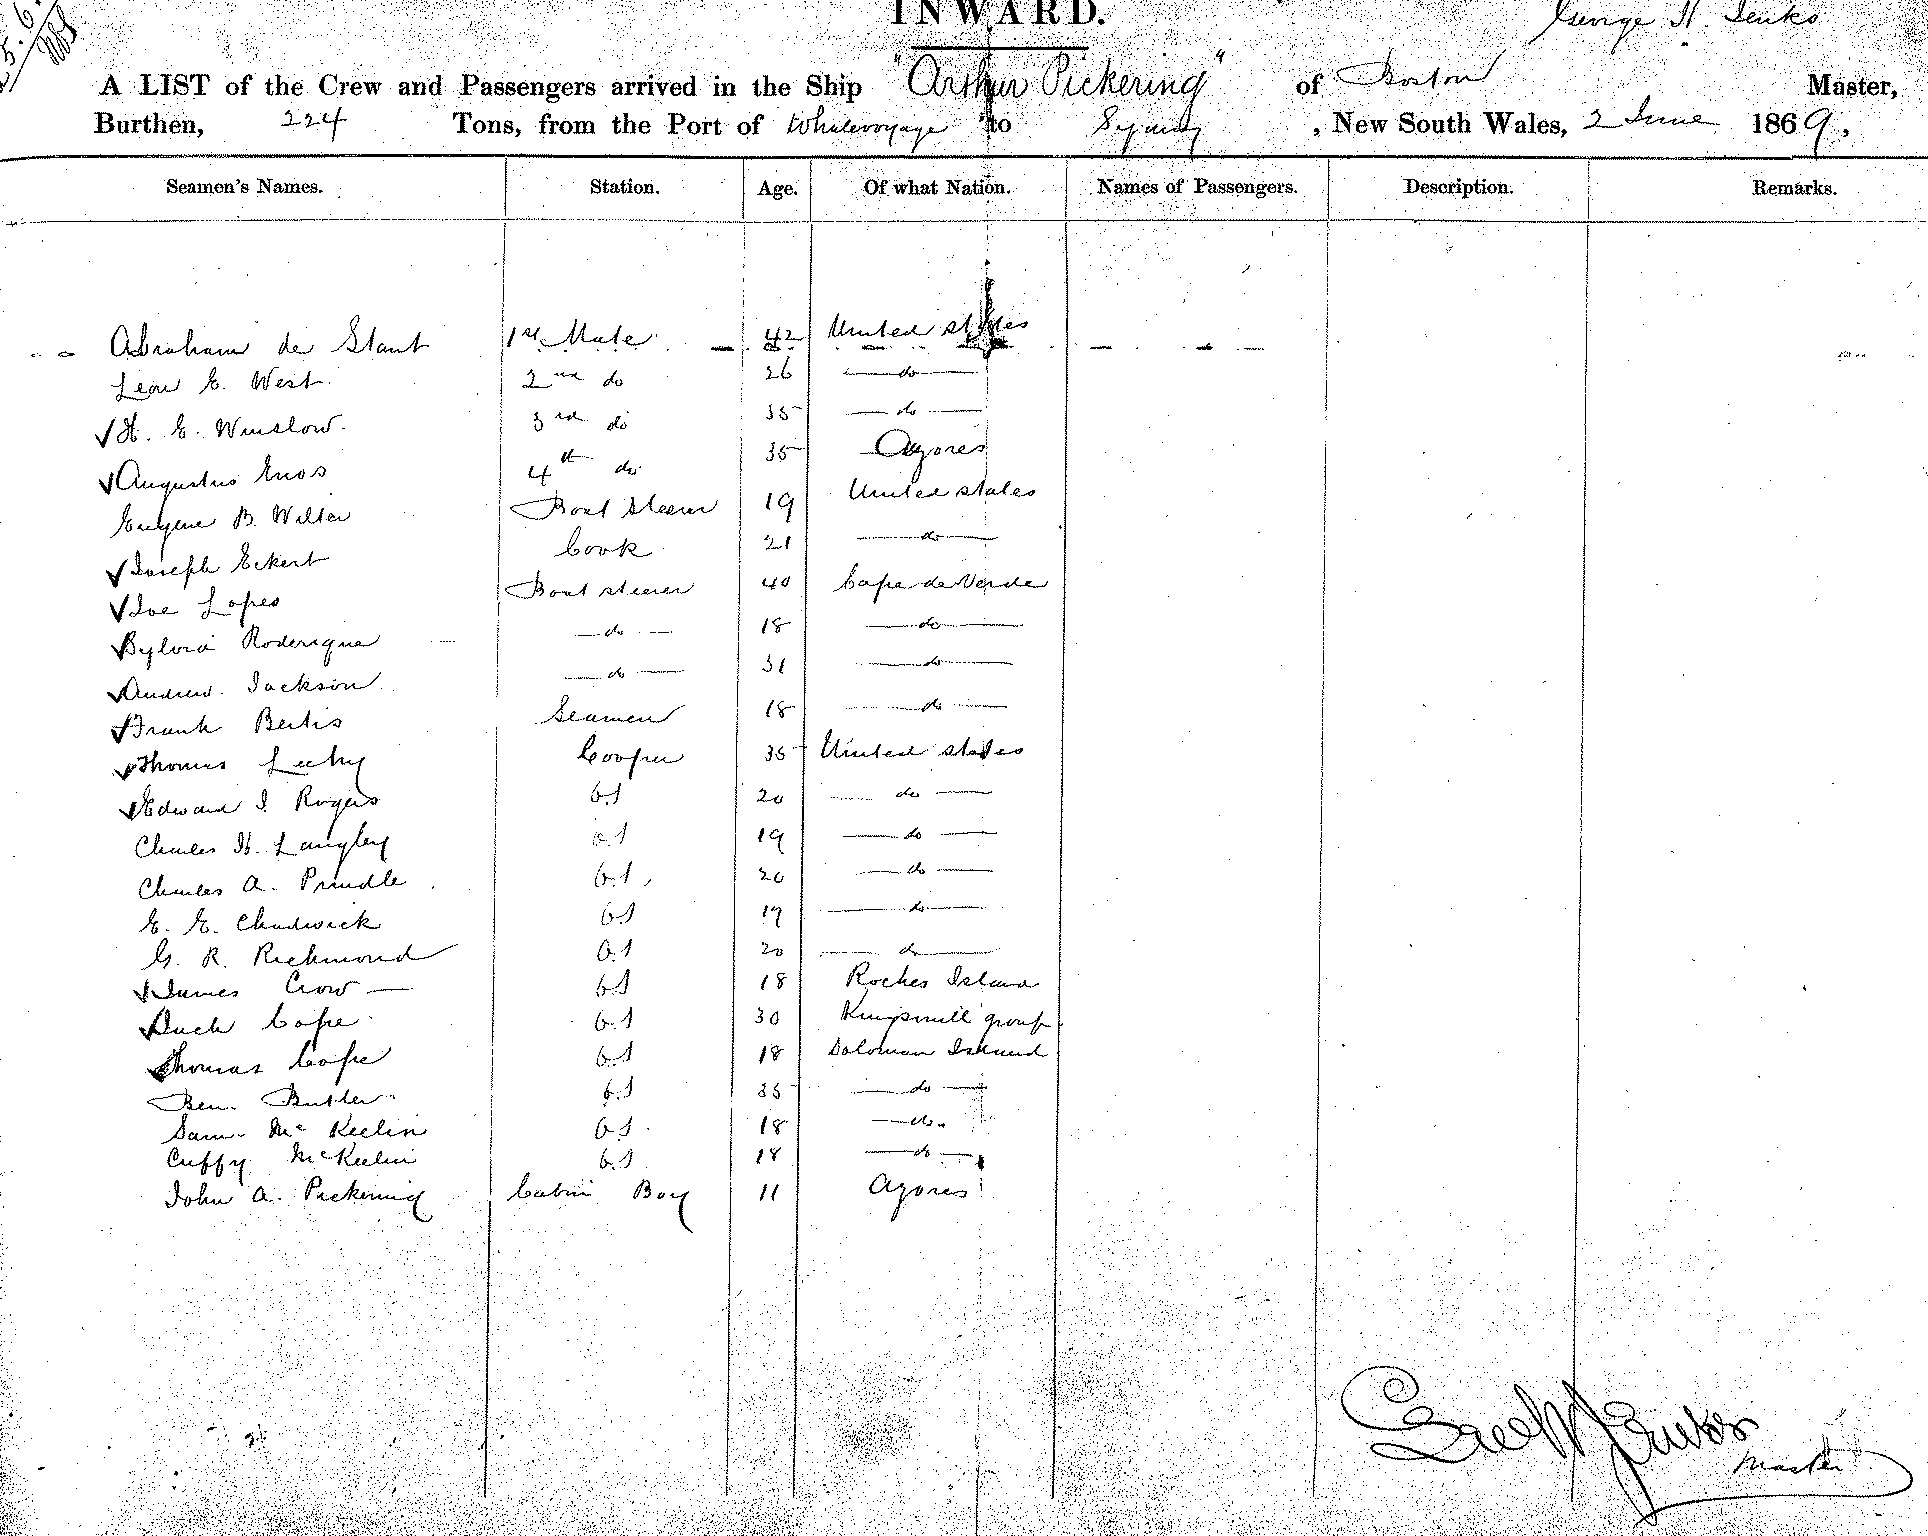 INWARD.
George H. Jenks
A LIST of the Crew and Passengers arrived in the Ship "Arthur Pickering" of Boston Master,
Burthen, 224 Tons, from the Port of Whalevoyage to Sydney, New South Wales, 2 June 1869,
Seamen's Names. Station. Age. Of what Nation. Names of Passengers. Description. Remarks.
Abraham de Staut 1st Mate 42 United states
Leon E. West 2nd do 26 do
H. E. Winslow 3rd do 35 do
Augustus Enos 4th do 35 Azores
Eugene B. Wilter Boat steerer 19 United states
Joseph Eckert Cook 21 do
Joe Lopes Boat steerer 40 Cape de Verde
Sylvia Roderique do 18 do
Andrew Jackson do 31 do
Frank Bertis Seamen 18 do
Thomas Leehy Cooper 35 United states
Edward J. Rogers OS 20 do
Charles H. Langley OS 19 do
Charles A. Prindle OS 20 do
E. E. Chadwick OS 19 do
G. R. Richmond OS 20 do
James Crow OS 18 Roches Island
Jack Cope OS 30 Kingsmill group
Thomas Cope OS 18 Soloman Island
Ben. Butler OS 35 do
Sam. McKeelin OS 18 do
Cuffy McKeelin OS 18 do
John A. Pickering Cabin Boy 11 Azores
Geo H Jenks
Master